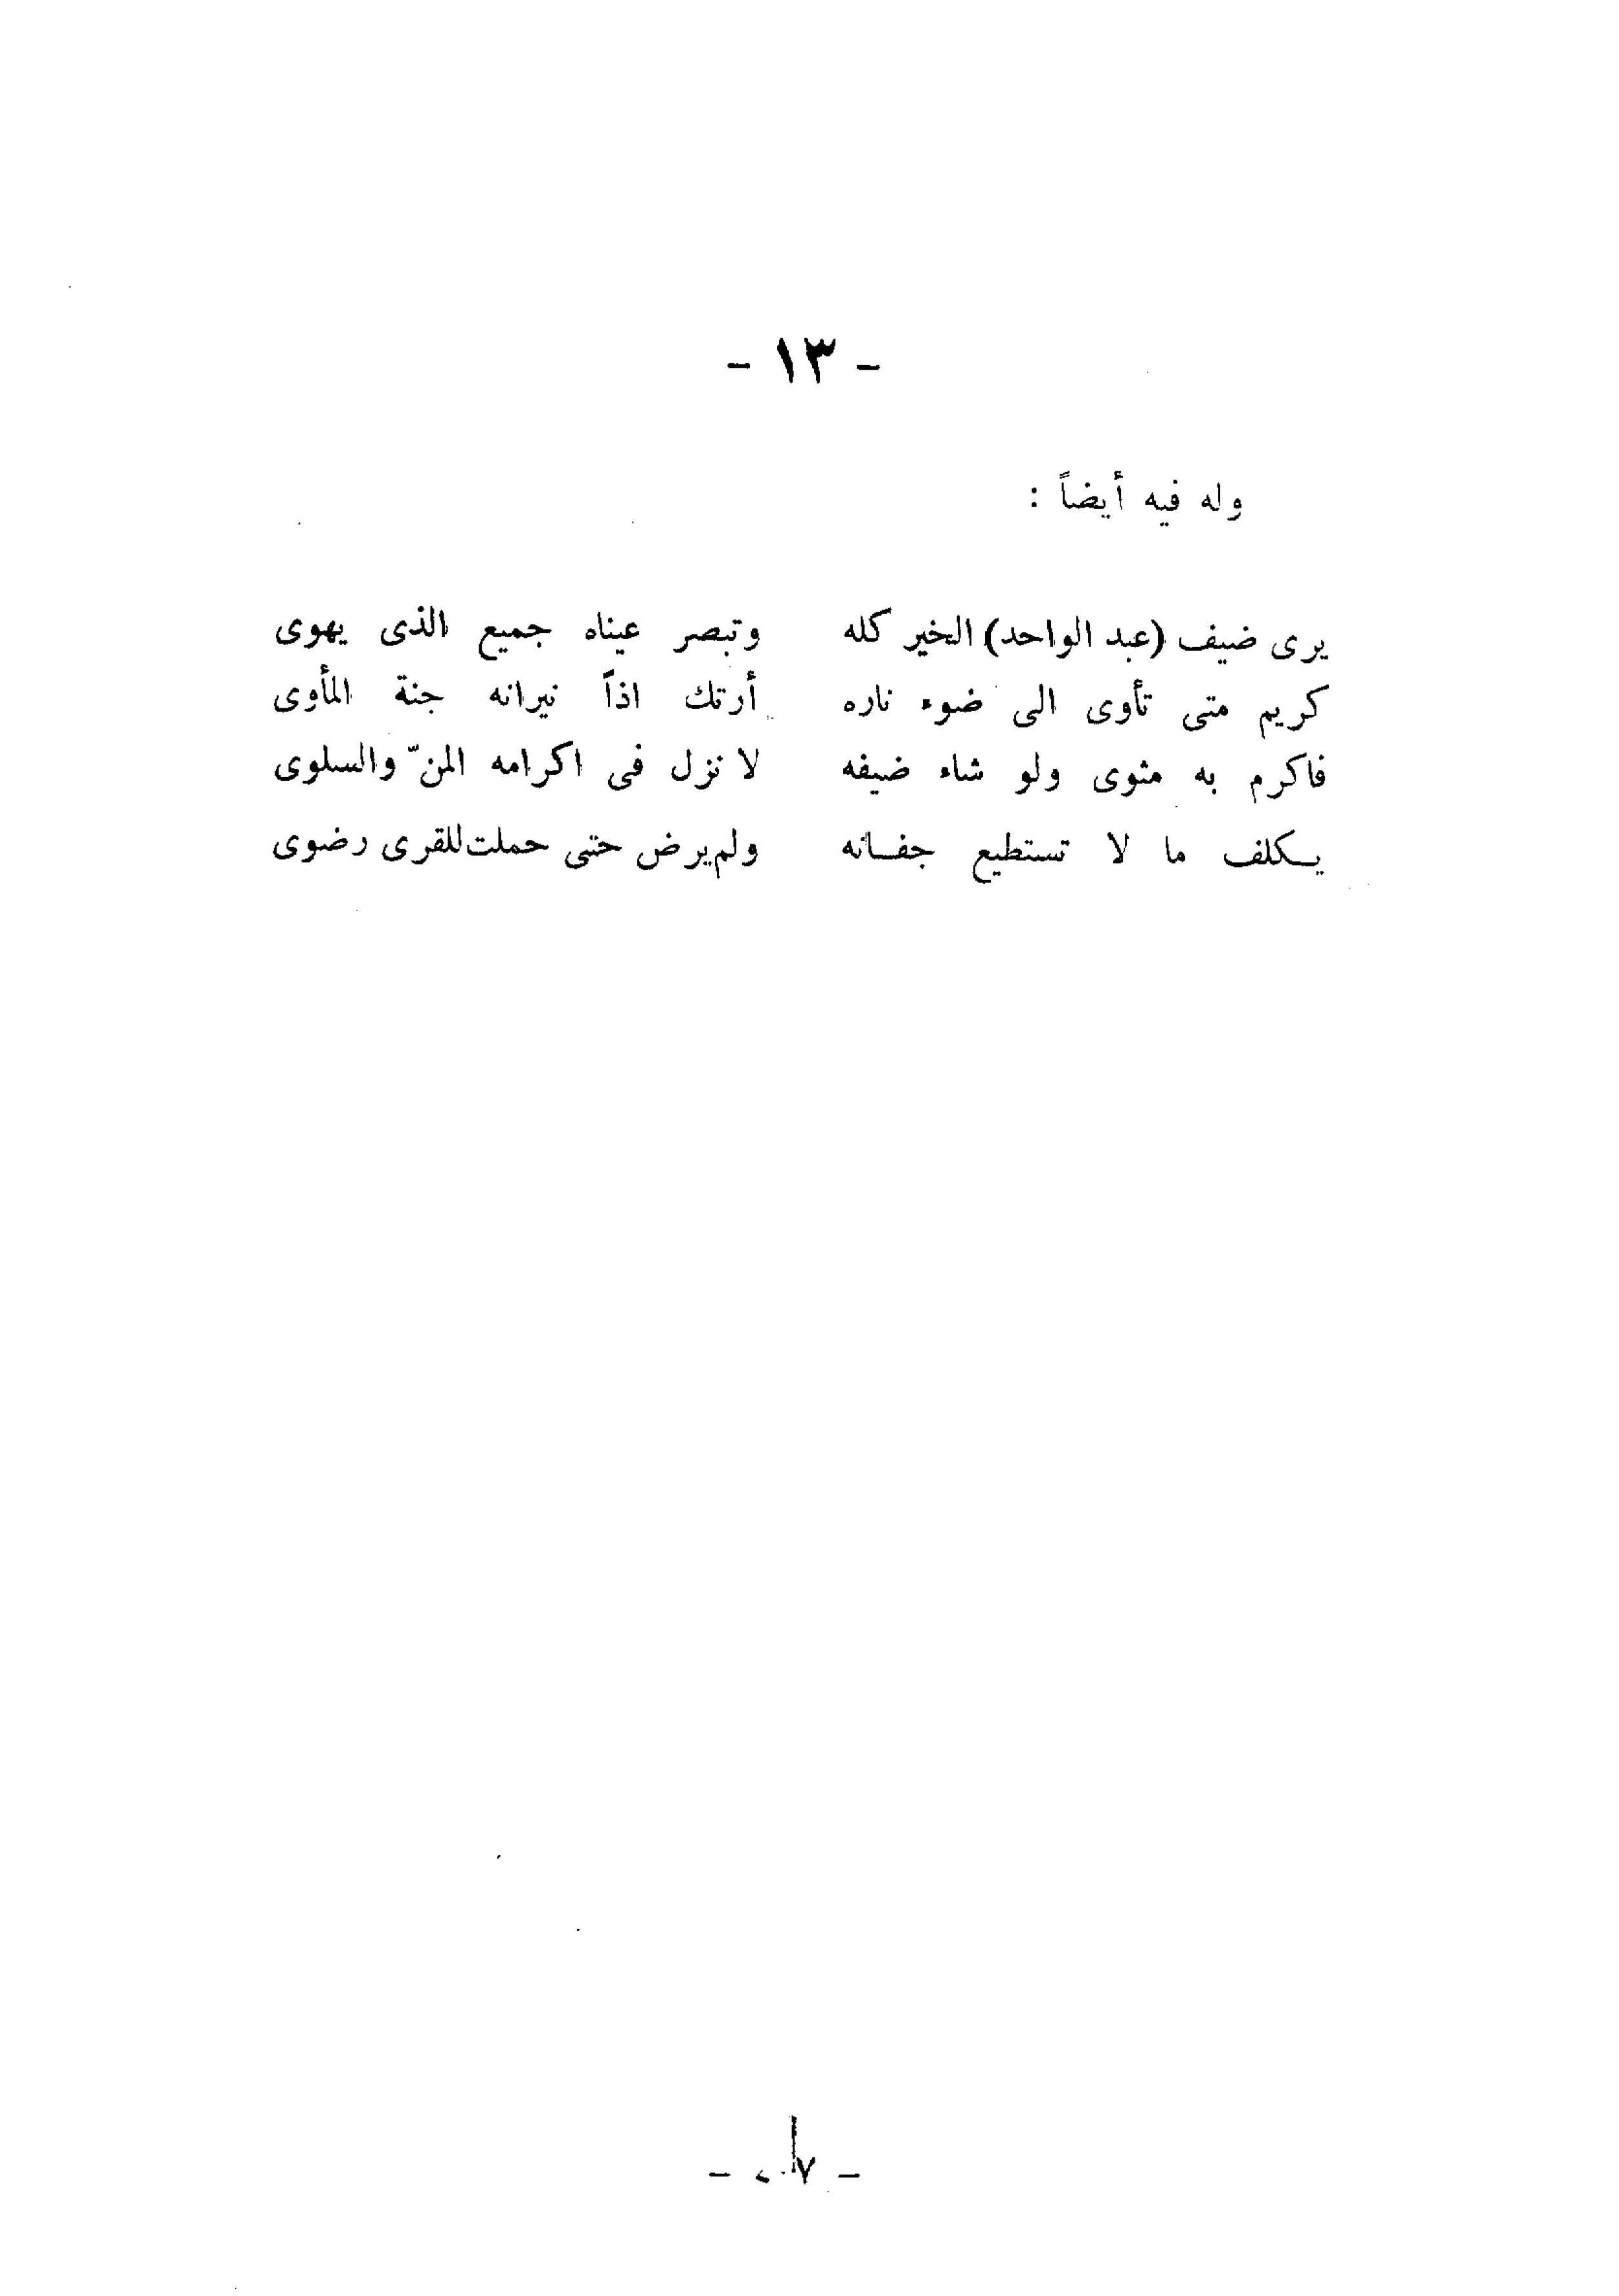 - ١٣ -
وله فيه أيضاً :
يرى ضيف (عبد الواحد) الخير كله وتبصر عيناه جميع الذى يهوى
كريم متى تأوى الى ضوء ناره أرتك اذاً نيرانه جنة المأوى
فاكرم به مثوى ولو شاء ضيفه لا نزل فى اكرامه المنّ والسلوى
يـكلف ما لا تستطيع جفـانه ولم يرض حتى حملت للقرى رضوى